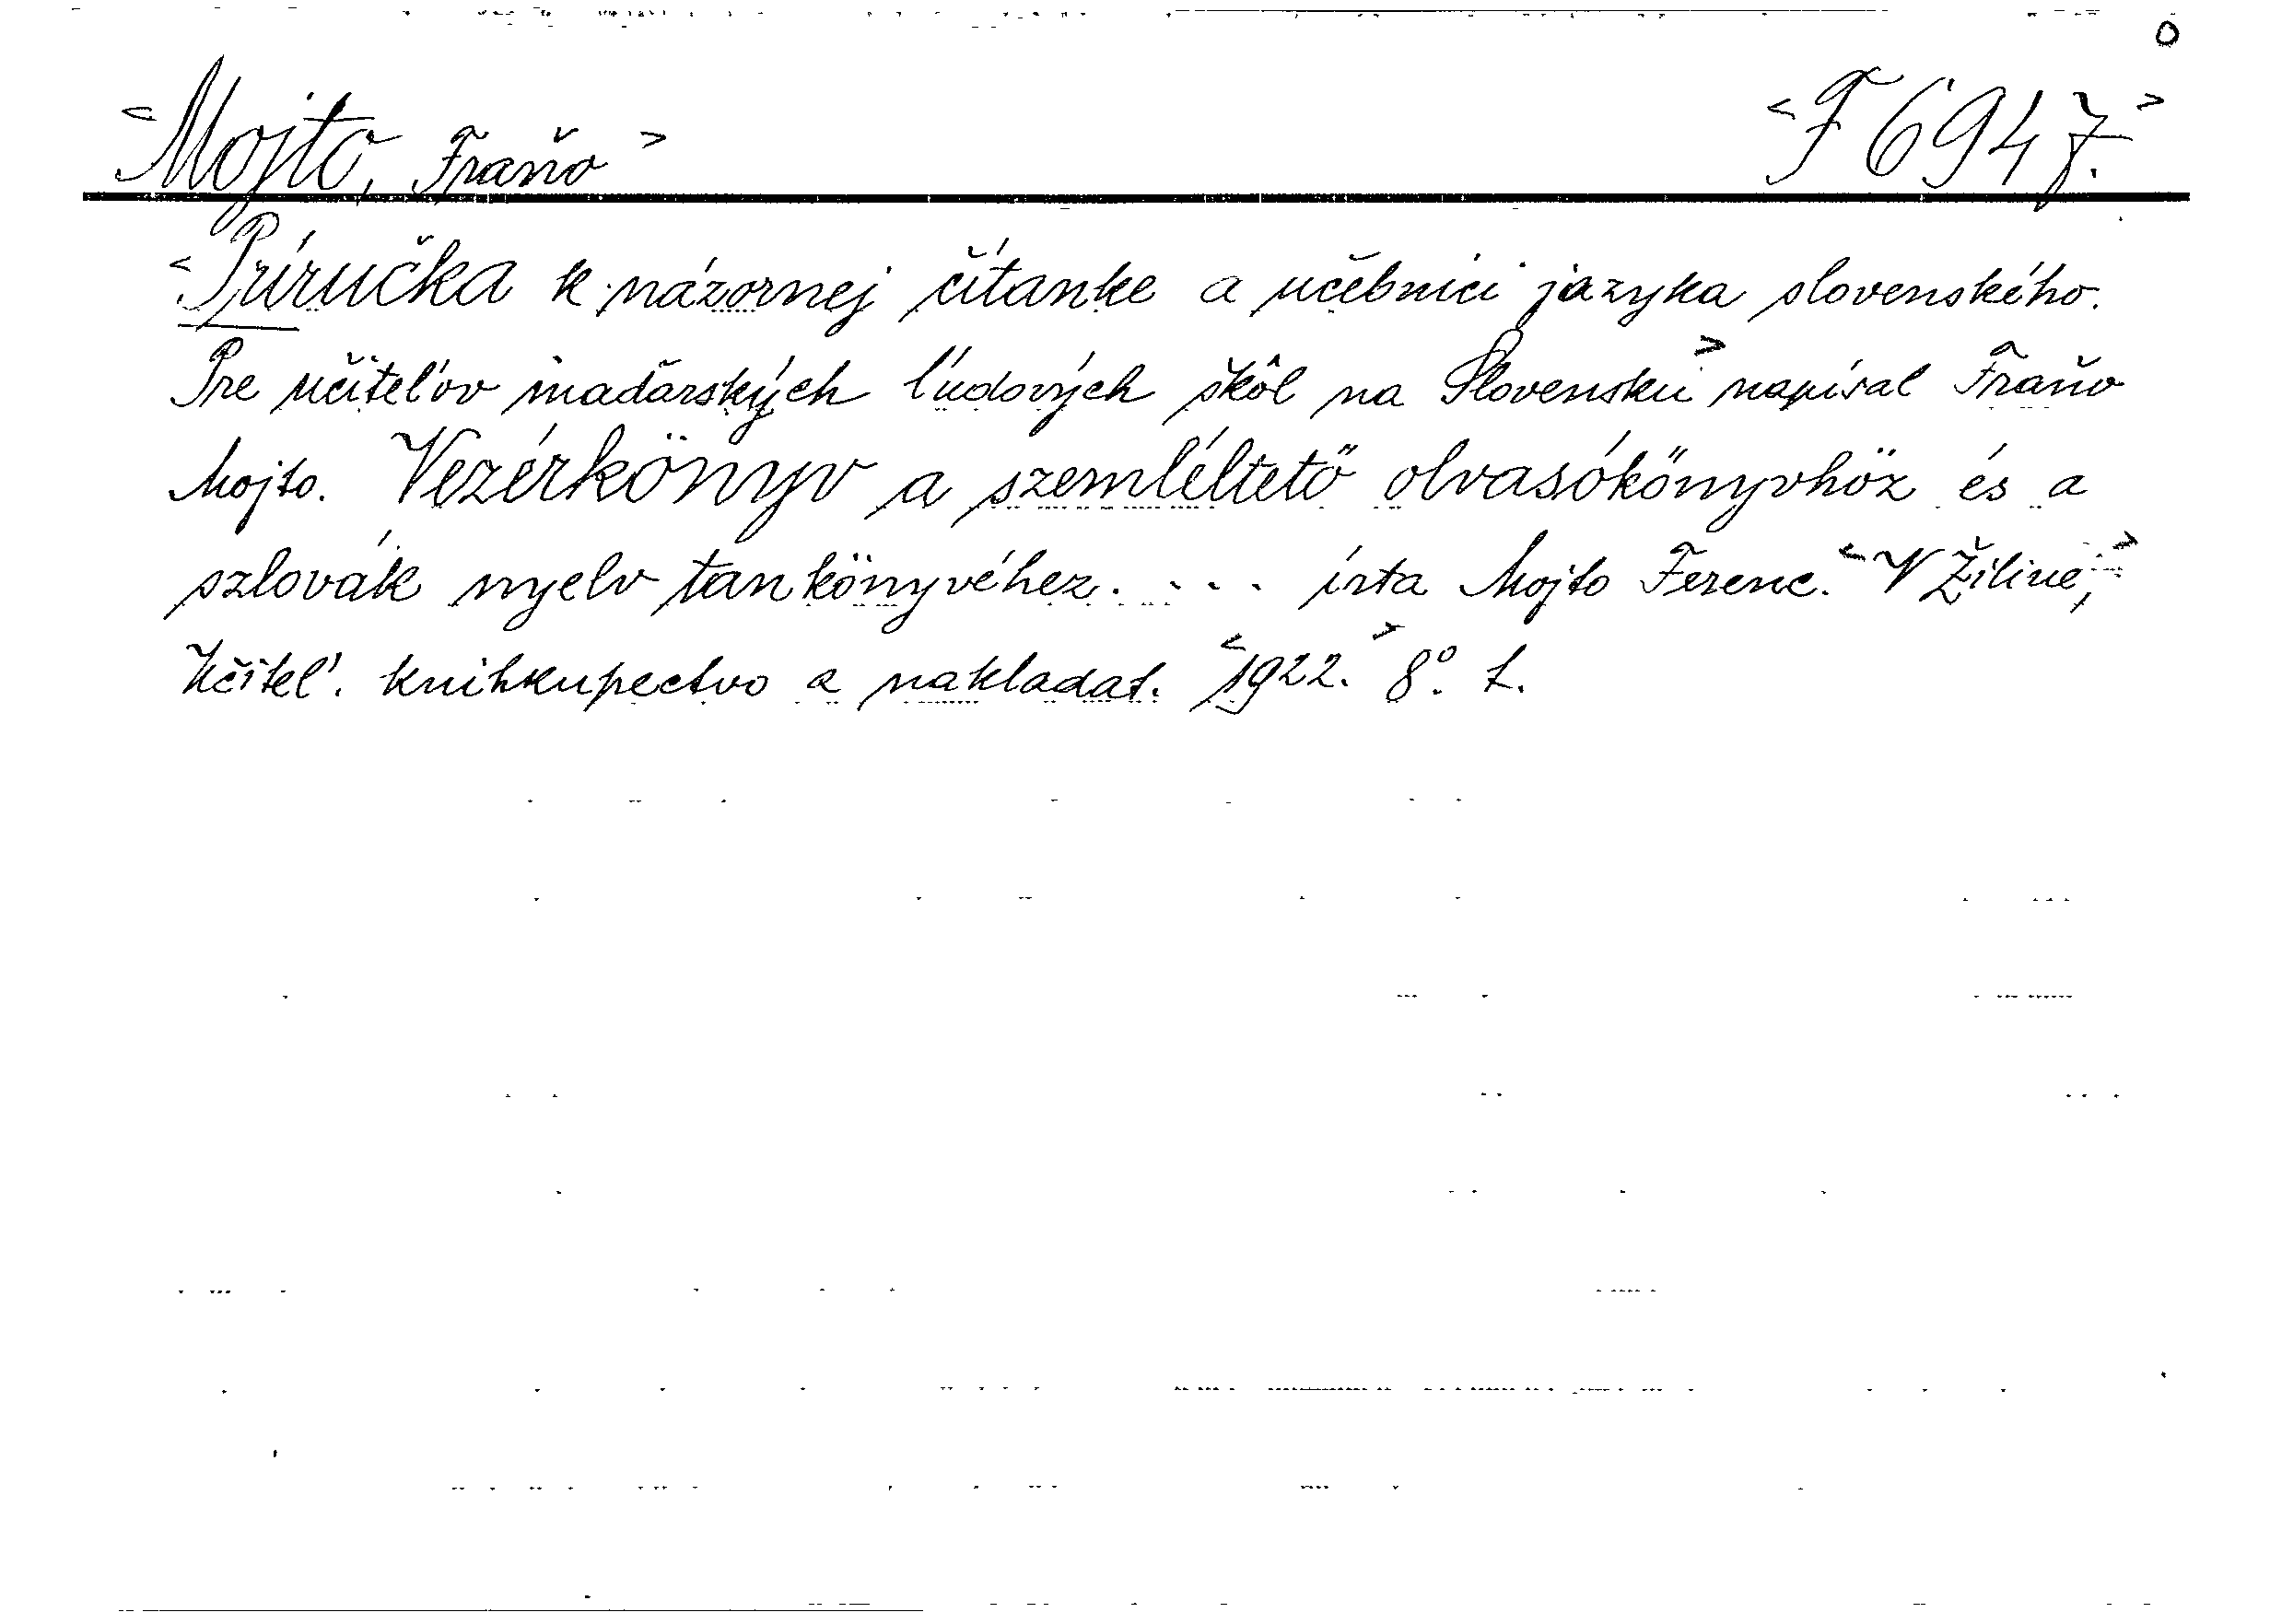 o
<Mojto, Fraňo> <F 6947.>
<Príručka k názornej čítanke a učebnici jazyka slovenského.
Pre učiteľov maďarských ľudových škôl na Slovensku> napísal Fraňo
Mojto. Vezérkönyv a szemléltető olvasókönyvhöz és a
szlovák nyelv tankönyvéhez. ... írta Mojto Ferenc. <V Žiline,>
Učiteľ. kníhkupectvo a nakladat. <1922.> 8°. L.